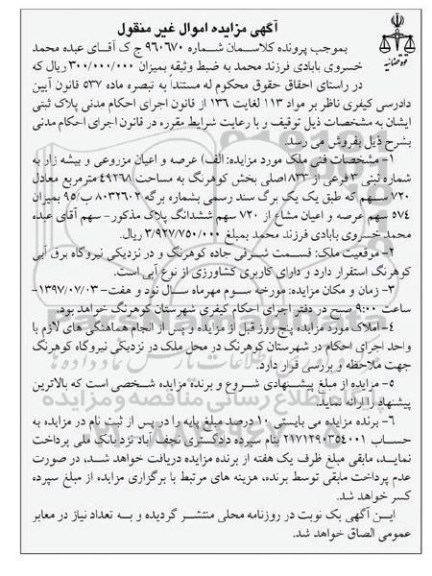 آگهی مزایده اموال غیر منقول
قوه قضائیه
بموجب پرونده کلاسمان شماره ۹۶۰۶۷۰ ج ک آقای عبده محمد
خسروی بابادی فرزند محمد به ضبط وثیقه بمیزان ۳۰۰/۰۰۰/۰۰۰ ریال که
در راستای احقاق حقوق محکوم له مستنداً به تبصره ماده ۵۳۷ قانون آیین
دادرسی کیفری ناظر بر مواد ۱۱۳ لغایت ۱۳۶ از قانون اجرای احکام مدنی پلاک ثبتی
ایشان به مشخصات ذیل توقیف و با رعایت شرایط مقرره در قانون اجرای احکام مدنی
بشرح ذیل بفروش می رسد.
۱- مشخصات فنی ملک مورد مزایده: الف) عرصه و اعیان مزروعی و بیشه زار به
شماره ثبتی ۳ فرعی از ۸۳۳ اصلی بخش کوهرنگ به مساحت ۴۹۲۶۸ مترمربع معادل
۷۲۰ سهم که طبق یک یک برگ سند رسمی بشماره برگه ۸۰۳۲۶۰۲ ب/۹۵ بمیزان
۵۷۴ سهم عرصه و اعیان مشاع از ۷۲۰ سهم ششدانگ پلاک مذکور- سهم آقای عبده
محمد خسروی بابادی فرزند محمد بمبلغ ۳/۹۲۷/۷۵۰/۰۰۰ ریال.
۲- موقعیت ملک: قسمت شرقی جاده کوهرنگ و در نزدیکی نیروگاه برق آبی
کوهرنگ استقرار دارد و دارای کاربری کشاورزی از نوع آبی است.
۳- زمان و مکان مزایده: مورخه سوم مهرماه سال نود و هفت- ۱۳۹۷/۰۷/۰۳-
ساعت ۹:۰۰ صبح در دفتر اجرای احکام کیفری شهرستان کوهرنگ خواهد بود.
۴- املاک مورد مزایده پنج روز قبل از مزایده و پس از انجام هماهنگی های لازم با
واحد اجرای احکام در شهرستان کوهرنگ در محل ملک در نزدیکی نیروگاه کوهرنگ
جهت ملاحظه و بررسی قرار دارد.
۵- مزایده از مبلغ پیشنهادی شروع و برنده مزایده شخصی است که بالاترین
پیشنهاد را ارائه نماید.
۶- برنده مزایده می بایستی ۱۰ درصد مبلغ پایه را در پس از ثبت نام در مزایده به
حساب ۲۱۷۱۲۹۰۳۵۴۰۰۱ بنام سپرده دادگستری نجف آباد نزد بانک ملی پرداخت
نمایند، مابقی مبلغ ظرف یک هفته از برنده مزایده دریافت خواهد شد، در صورت
عدم پرداخت مابقی توسط برنده، هزینه های مرتبط با برگزاری مزایده از مبلغ سپرده
کسر خواهد شد.
این آگهی یک نوبت در روزنامه محلی منتشر گردیده و به تعداد نیاز در معابر
عمومی الصاق خواهد شد.